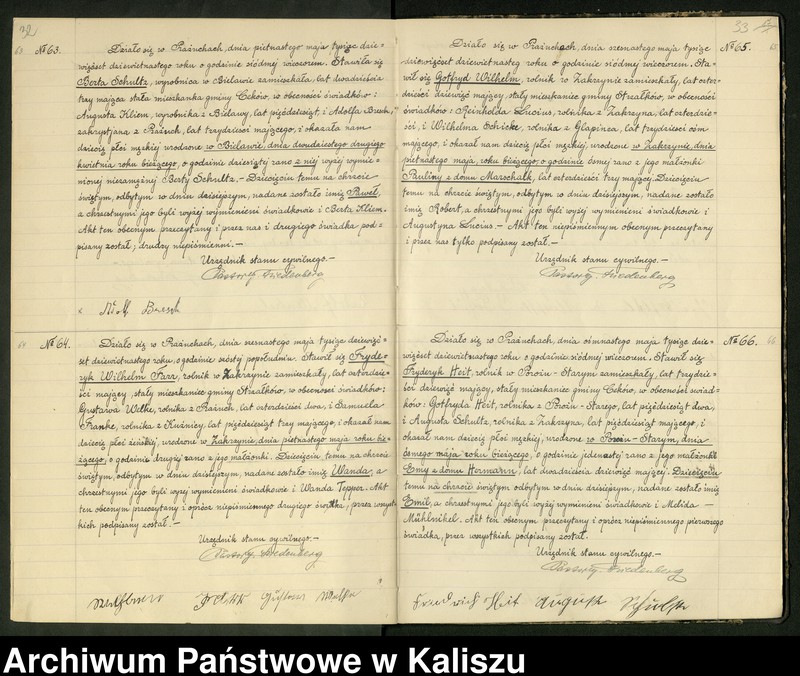 № 63.
Działo się w Prażuchach, dnia piętnastego maja tysiąc dzie-
więćset dziewiętnastego roku o godzinie siódmej wieczorem. Stawiła się
Berta Schultz, wyrobnica w Bielawie zamieszkała, lat dwadzieścia
trzy mająca stała mieszkanka gminy Ceków, w obecności świadków:
Augusta Kliem, wyrobnika z Bielawy, lat pięćdziesiąt, i Adolfa Bresch,
zakrystjana z Prażuch, lat trzydzieści mającego, i okazała nam
dziecię płci męzkiej urodzone w Bielawie, dnia dwudziestego drugiego
kwietnia roku bieżącego, o godzinie dziesiątej rano z niej wyżej wymie-
nionej niezamężnej Berty Schultz. — Dziecięciu temu na chrzcie
świętym, odbytym w dniu dzisiejszym, nadane zostało imię Paweł,
a chrzestnymi jego byli wyżej wymienieni świadkowie i Berta Kliem.
Akt ten obecnym przeczytany i przez nas i drugiego świadka pod-
pisany został; drudzy niepiśmienni. —
Urzędnik stanu cywilnego. —
Pastor Friedenberg
Bresch
№ 64.
Działo się w Prażuchach, dnia szesnastego maja tysiąc dziewięć-
set dziewiętnastego roku, o godzinie szóstej popołudniu. Stawił się Fryde-
ryk Wilhelm Farr, rolnik w Zakrzynie zamieszkały, lat czterdzie-
ści mający, stały mieszkaniec gminy Strzałków, w obecności świadków:
Gustawa Welke, rolnika z Prażuch, lat czterdzieści dwa, i Samuela
Franke, rolnika z Kuźnicy, lat pięćdziesiąt trzy mającego, i okazał nam
dziecię płci żeńskiej, urodzone w Zakrzynie, dnia piętnastego maja roku bie-
żącego, o godzinie drugiej rano z jego małżonki. Dziecięciu temu na chrzcie
świętym, odbytym w dniu dzisiejszym, nadane zostało imię Wanda, a
chrzestnymi jego byli wyżej wymienieni świadkowie i Wanda Tepper. Akt
ten obecnym przeczytany i oprócz niepiśmiennego drugiego świadka, przez wszyst-
kich podpisany został. —
Urzędnik stanu cywilnego. —
Pastor Friedenberg
Gustaw
33
№ 65.
Działo się w Prażuchach, dnia szesnastego maja tysiąc
dziewięćset dziewiętnastego roku o godzinie siódmej wieczorem. Sta-
wił się Gotfryd Wilhelm, rolnik w Zakrzynie zamieszkały, lat czter-
dzieści dziewięć mający, stały mieszkaniec gminy Strzałków, w obecności
świadków: Reinholda Lucius, rolnika z Zakrzyna, lat czterdzie-
ści, i Wilhelma Schicke, rolnika z Głapińca, lat trzydzieści ośm
mającego, i okazał nam dziecię płci męzkiej, urodzone w Zakrzynie, dnia
piętnastego maja, roku bieżącego, o godzinie ósmej rano z jego małżonki
Pauliny z domu Marschalk, lat czterdzieści trzy mającej. Dziecięciu
temu na chrzcie świętym, odbytym w dniu dzisiejszym, nadane zostało
imię Robert, a chrzestnymi jego byli wyżej wymienieni świadkowie i
Augustyna Lucius. — Akt ten niepiśmiennym obecnym przeczytany
i przez nas tylko podpisany został. —
Urzędnik stanu cywilnego. —
Pastor Friedenberg
№ 66.
Działo się w Prażuchach, dnia ośmnastego maja tysiąc dzie-
więćset dziewiętnastego roku o godzinie siódmej wieczorem. Stawił się
Fryderyk Heit, rolnik w Porożu-Starym zamieszkały, lat trzydzie-
ści dziewięć mający, stały mieszkaniec gminy Ceków, w obecności świad-
ków: Gotfryda Heit, rolnika z Poroża-Starego, lat pięćdziesiąt dwa,
i Augusta Schultz, rolnika z Zakrzyna, lat pięćdziesiąt mającego, i
okazał nam dziecię płci męzkiej, urodzone w Porożu-Starym, dnia
ósmego maja roku bieżącego, o godzinie jedenastej rano z jego małżonki
Emy z domu Hermann, lat dwadzieścia dziewięć mającej. Dziecięciu
temu na chrzcie świętym odbytym w dniu dzisiejszym, nadane zostało imię
Emil, a chrzestnymi jego byli wyżej wymienieni świadkowie i Melida —
Mühlnikel. Akt ten obecnym, przeczytany i oprócz niepiśmiennego pierwszego
świadka, przez wszystkich podpisany został.
Urzędnik stanu cywilnego. —
Pastor Friedenberg
Friedrich Heit August Schulz
Archiwum Państwowe w Kaliszu